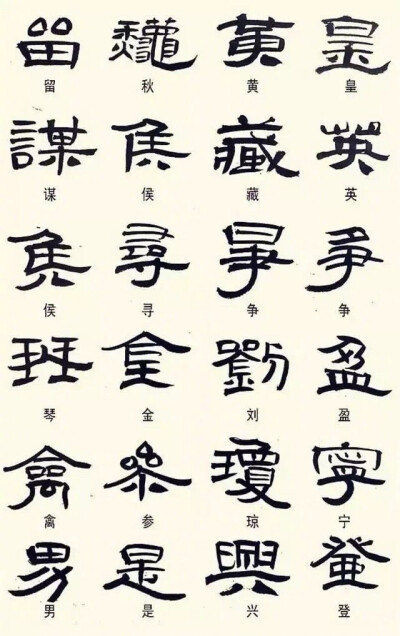 留 龝 黃 皇
留 秋 黄 皇
謀 侯 藏 英
谋 侯 藏 英
侯 尋 爭 爭
侯 寻 争 争
金 劉 盈
琴 金 刘 盈
禽 參 瓊 寧
禽 参 琼 宁
男 是 興 登
男 是 兴 登